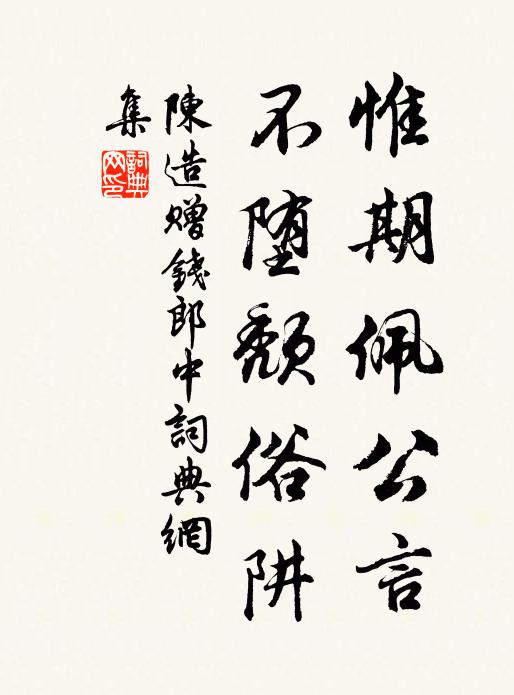 惟期佩公言
不堕颓俗阱
陳造贈錢郎中詞典網
集
詞典
网印